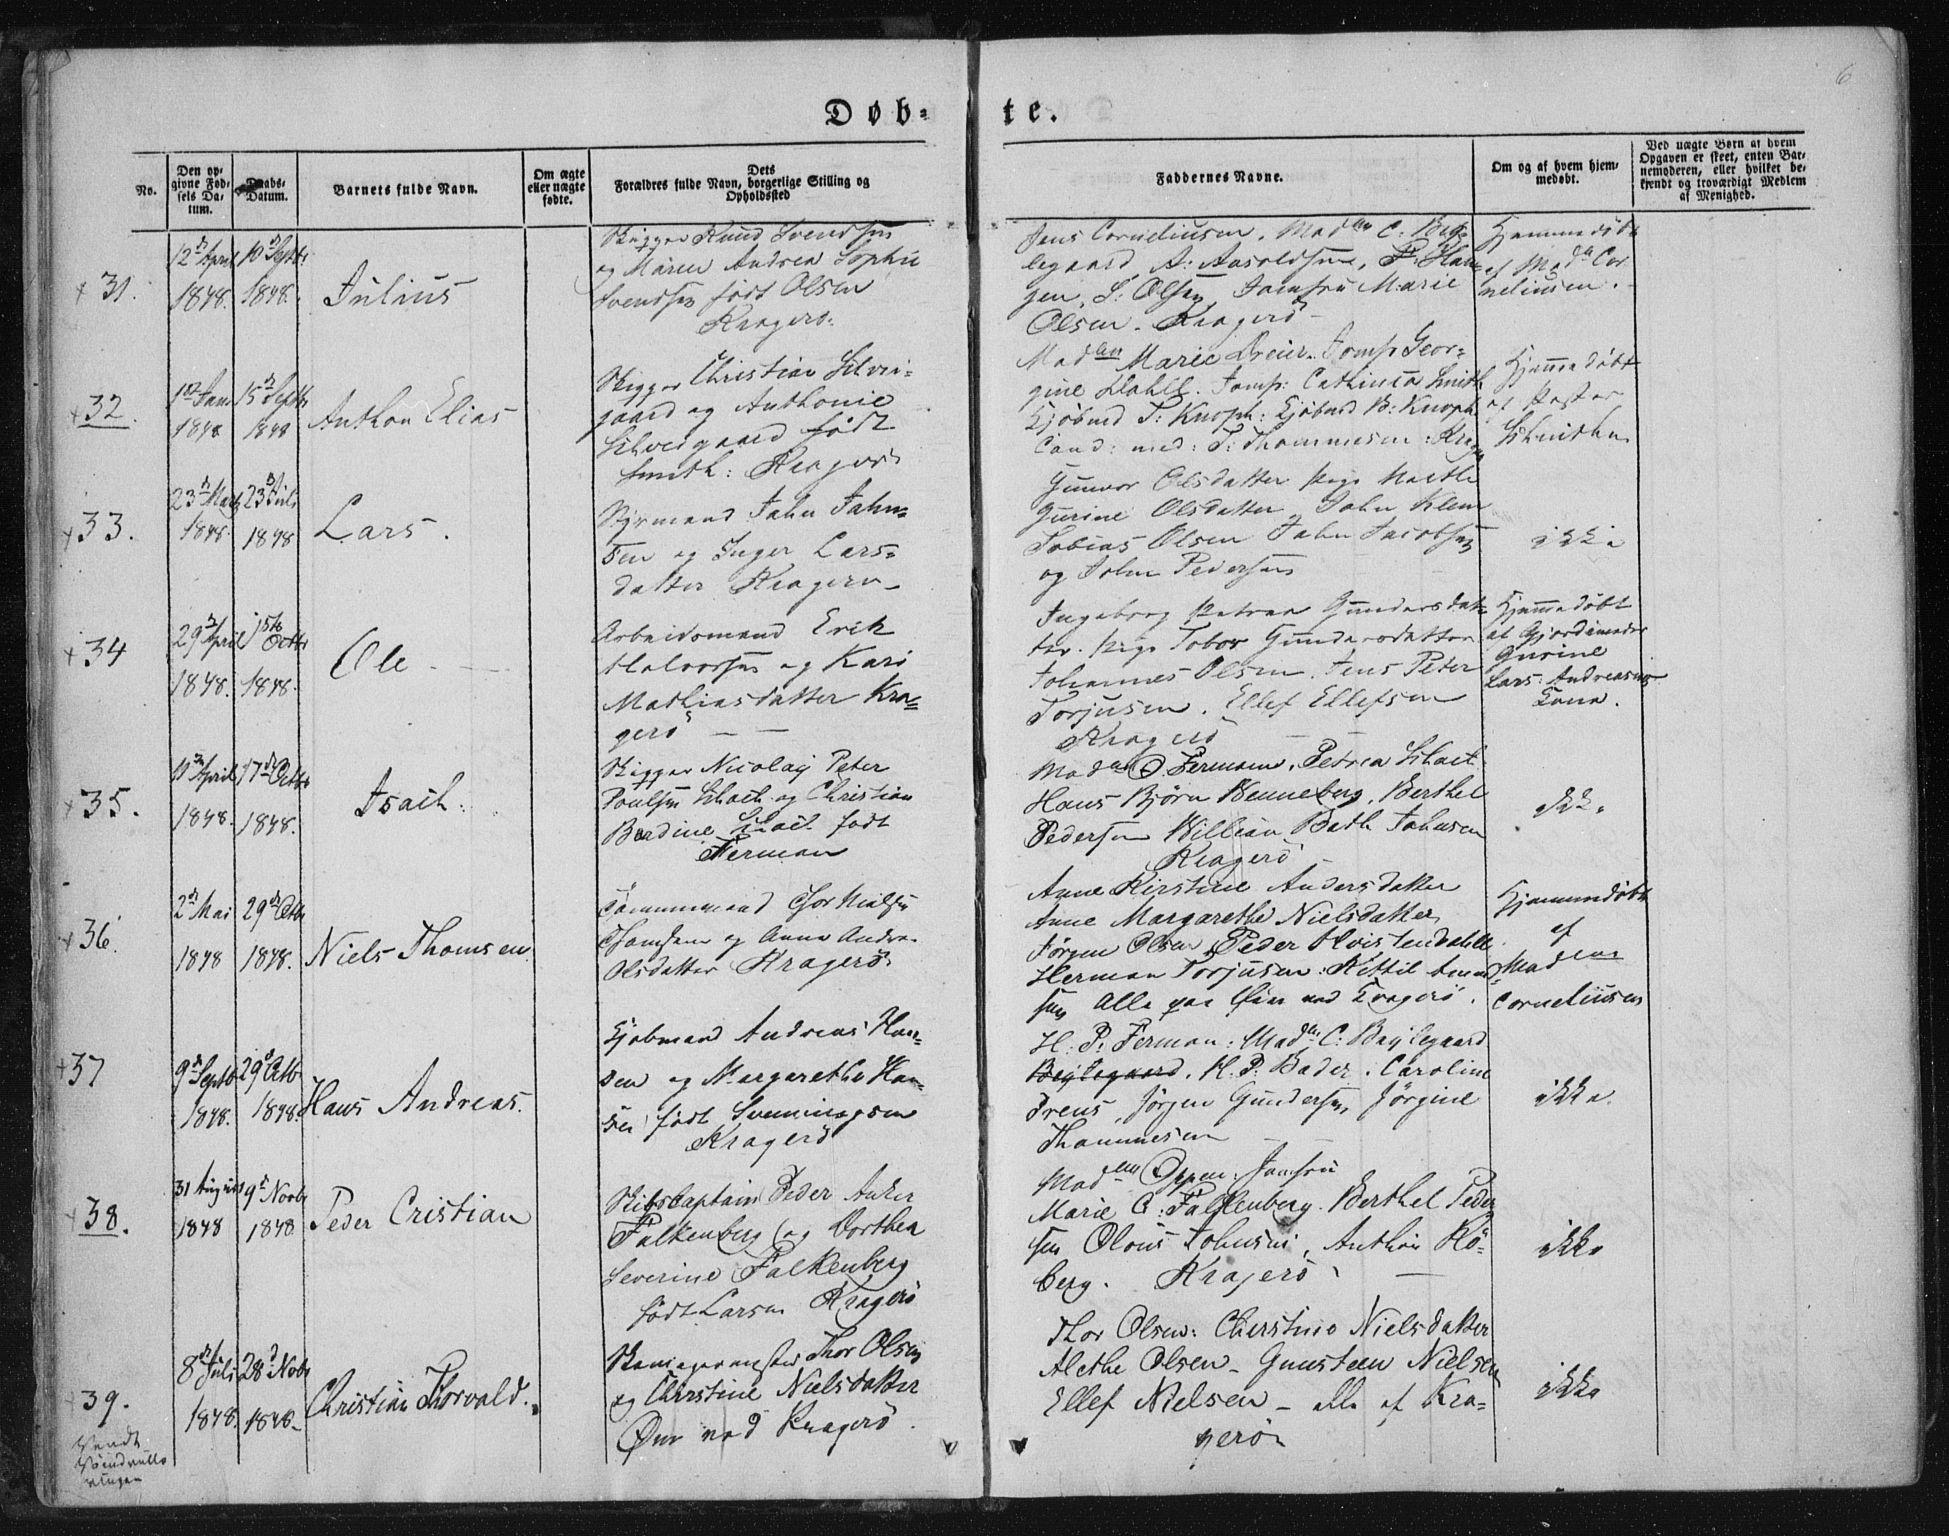 6
Døb=
te.
No.
Den op-
givne Fød-
sels Da-
tum.
Daabs-
Datum.
Barnets fulde Navn.
Om ægte
eller uægte
fødte.
Dets
Forældres fulde Navn, borgerlige Stilling og
Opholdssted
Faddernes Navne.
Om og af hvem hjem-
medøbt.
Ved uægte Børn af hvem
Opgaven er skeet, enten Bar-
nemoderen, eller hvilket be-
kjendt og troværdigt Medlem
af Menighed.
+ 31.
12 April
1848.
10 Septbr
1848.
Julius
Skipper Knud Svendsen
og Maren Andrea Sophie
Svendsen født Olsen
Kragerø.
Jens Corneliusen. Madm C. Bøy-
legaard, A. Aasoldsen, P. Han-
sen, S. Olsen, Jomfru Marie
Olsen. Kragerø
Hjemmedøbt
af Madm Cor
neliusen.
+ 32.
1848
15 Septbr
1848
Anthon Elias
Skipper Christian Schwei-
gaard og Anthonie
Schweigaard født
Smith: Kragerø
Madm Marie Dreier. Jomf. Geor-
gine Dahll. Jomf: Cathinca Smith
Kjøbmd T: Knoph: Kjøbmd B: Knoph
Cand: med: T: Thommesen: Krage
Hjemmedøbt
af Pastor
+ 33.
23 Marts
1848.
23 Juli
1848
Lars.
Styrmand John John-
sen og Inger Lars-
datter Kragerø
Gunvor Olsdatter Pige Marthe
Gurine Olsdatter, John Klem
Tobias Olsen John Jacobsen
og John Pedersen
ikke
+ 34
29 April
1848.
15 Octbr
1848.
Ole
Arbeidsmand Erik
Halvorsen og Kari
Mathiasdatter Kra-
gerø
Ingeborg Petrea Gundersdat-
ter. Pige Tobor Gundersdatter
Johannes Olsen. Jens Peter
Torjusen. Ellef Ellefsen
Kragerø
Hjemmedøbt
af Gjordemoder
Gurine
Lars Andreasens
Kone.
+ 35.
11 April
1848.
17 Octbr
1848.
Isach.
Skipper Nicolay Peter
Poulsen Schack og Christian
Berdine Schack født
Ferman
Madm O Ferman. Petrea Schack
Hans Bjørn Wenneberg. Berthel
Pedersen William Bath Johnsen
Kragerø
ikke
+ 36.
2 Mai
1848
29 Octbr
1848.
Niels Thomsen
Tømmermand Thor Nielsen
Thomsen og Anne Andrea
Olsdatter Kragerø
Anne Kirstine Andersdatter
Anne Margarethe Nielsdatter
Jørgen Olsen, Peder Hvistendahl
Herman Torjusen: Kettil Amund
sen Alle paa Øen ved Kragerø.
Hjemmedøbt
af
Madm
Corneliusen
+ 37
9 Septb
1848.
29 Octb
1848.
Hans Andreas.
Kjøbmand Andreas Han-
sen og Margarethe Han-
sen født Svenningsen
Kragerø
H. P. Ferman: Madm C: Bøylegaard
Bøylegaard. H. P. Bader. Caroline
Preus, Jørgen Gundersen, Jørgine
Thommesen
ikke.
+ 38.
31 August
1848
9 Novbr
1848.
Peder Cristian
Skibscaptain Peder Anker
Falkenberg og Dorthea
Severine Falkenberg
født Larsen Kragerø
Madm Oppen, Jomfru
Marie C. Falkenberg. Berthel Peder
sen Olous Johnsen, Anthon Kø-
berg. Kragerø
ikke
+ 39.
8 Juli
1848.
28 Novbr
1848.
Christian Thorvald.
Thor Olsen
og Christine Nielsdatter
Øen ved Kragerø.
Thor Olsen: Cherstine Nielsdatter
Alethe Olsen - Gunsteen Nielsen
Ellef Nielsen - alle af Kra-
gerø
ikke
Vendt